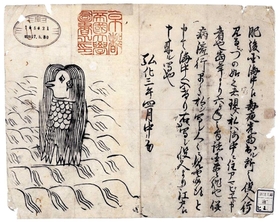 肥後国海中え毎夜光物出ル所之役人行
見るニづの如く者現ス私ハ海中ニ住アマビヱト申
者也当年より六ヶ年之間諸国豊作也併
病流行早々私ヲ写シ人々ニ見セ候得と
申て海中へ入けり右ハ写シ役人より江戸え
申来ル写也
弘化三年四月中旬
京都
帝国大学
図書之印